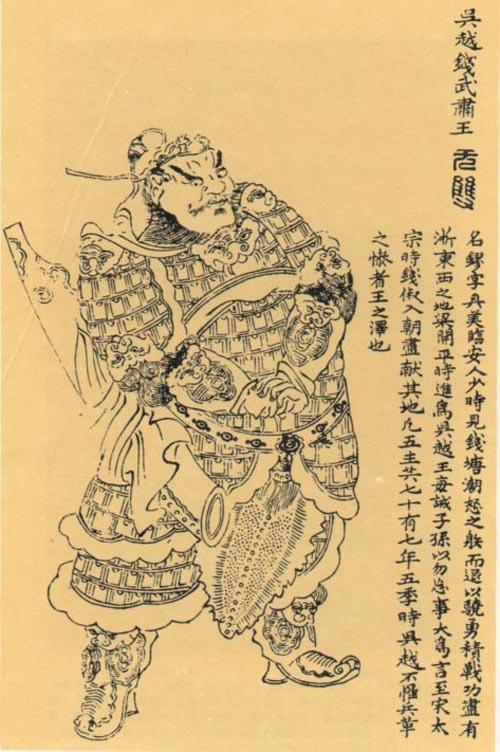 吳越錢武肅王 无雙
名鏐字具美臨安人少時見錢塘潮怒之䠶而退以驍勇積戰功盡有
浙東西之地梁開平時進爲吳越王每誡子孫以勿忘事大爲言至宋太
宗時錢俶入朝盡献其地凡五主共七十有七年五季時吳越不罹兵革
之慘者王之澤也